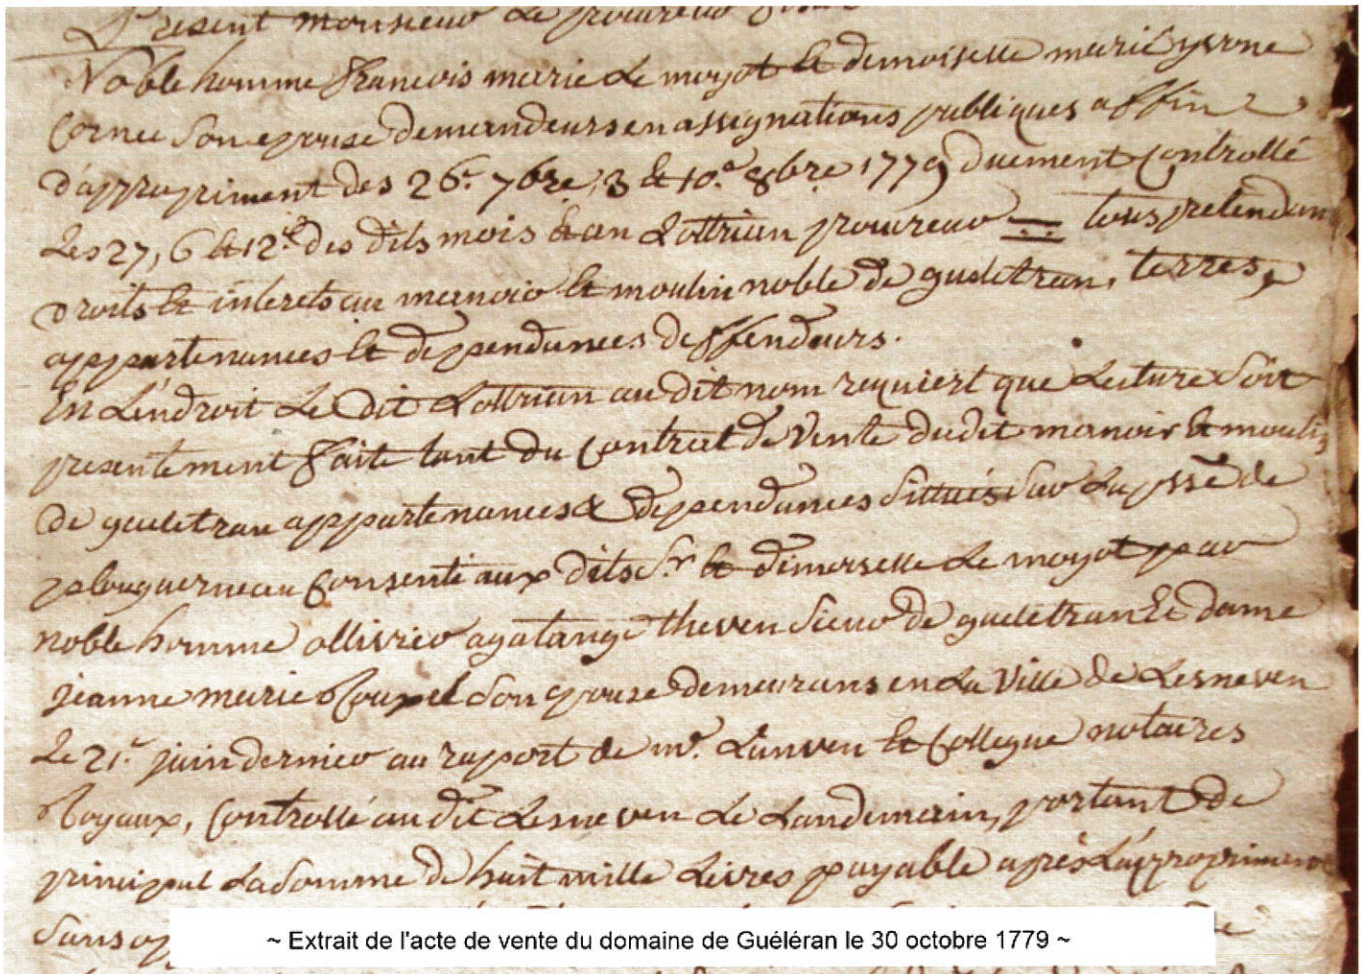 Present monsieur Le procureur
Noble homme francois marie Le moyot Et demoiselle marie yvonne
Cornec Son epouse demandeurs en assignations publiques affin
d'appropriment des 26.e 7bre, 3 et 10.e 8bre 1779 duement Controllé
Les 27, 6 et 12.e des dits mois Et an Lottrian procureur = tous pretendan
droits Et interets au manoir Et moulin noble de gueletran, terres,
appartenances Et dependances deffendeurs.
En L'endroit Le Dit Lottrian audit nom requiert que Lecture Soit
presentement faite tant du Contrat de Vente dudit manoir Et moulin
de gueletran appartenances & dependances Sittués Sur La psse de
plouguerneau Consenti aux dits Sr Et demoiselle Le moyot par
noble homme ollivier agatange theven Sieur de gueletran Et dame
jeanne marie Rouxel Son epouse demeurans en La Ville de Lesneven
Le 21.e juin dernier au raport de mr. Lanven Et Collegue notaires
Royaux, Controllé au dit Lesneven Le Landemain, portant de
principal La Somme de huit mille Livres payable après L'appropriment
Sans
~ Extrait de l'acte de vente du domaine de Guéléran le 30 octobre 1779 ~